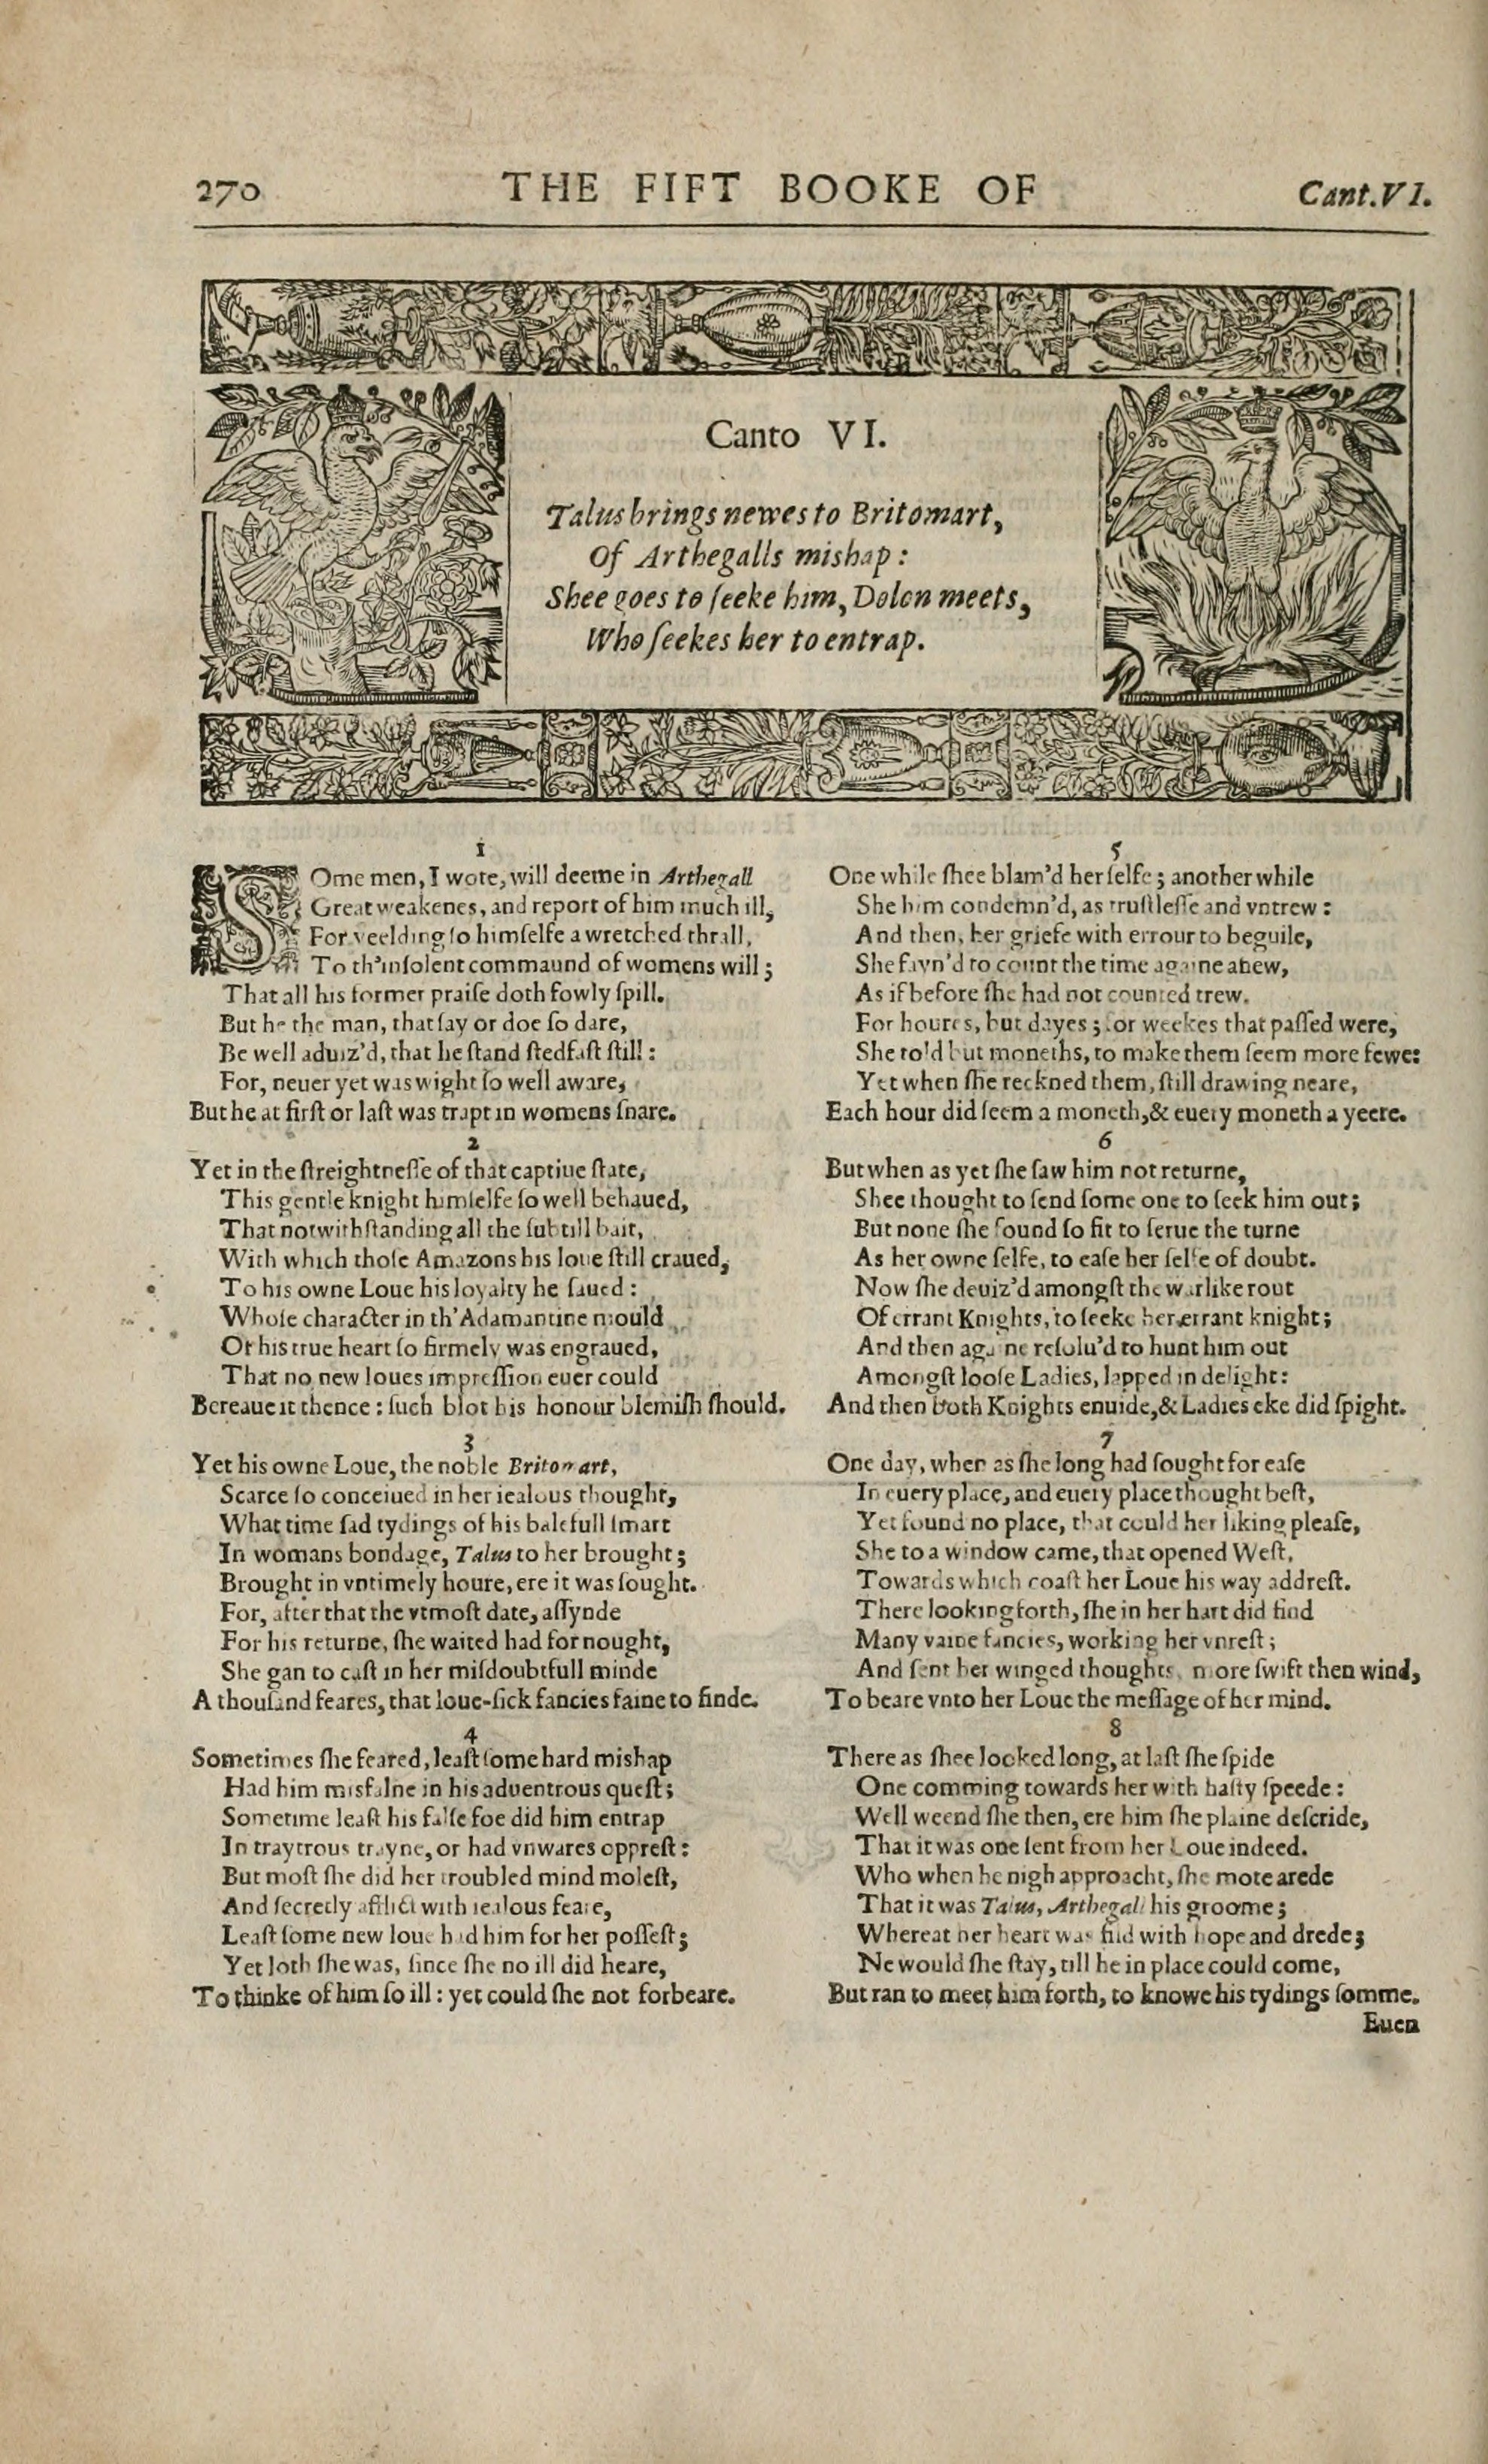 270 THE FIFT BOOKE OF Cant.VI.
Canto VI.
Talus brings newes to Britomart,
Of Arthegalls mishap:
Shee goes to ſeeke him, Dolon meets,
Who ſeekes her to entrap.
1
SOme men, I wote, will deeme in Arthegall
Great weakenes, and report of him much ill,
For yeelding ſo himſelfe a wretched thrall,
To th'inſolent commaund of womens will;
That all his former praiſe doth fowly ſpill.
But he the man, that ſay or doe ſo dare,
Be well aduiz'd, that he ſtand ſtedfaſt ſtill:
For, neuer yet was wight ſo well aware,
But he at firſt or laſt was trapt in womens ſnare.
2
Yet in the ſtreightneſſe of that captiue ſtate,
This gentle knight himſelfe ſo well behaued,
That notwithſtanding all the ſubtill bait,
With which thoſe Amazons his loue ſtill craued,
To his owne Loue his loyalty he ſaued:
Whoſe character in th'Adamantine mould
Of his true heart ſo firmely was engraued,
That no new loues impreſſion euer could
Bereaue it thence: ſuch blot his honour blemiſh ſhould.
3
Yet his owne Loue, the noble Britomart,
Scarce ſo conceiued in her iealous thought,
What time ſad tydings of his balefull ſmart
In womans bondage, Talus to her brought;
Brought in vntimely houre, ere it was ſought.
For, after that the vtmoſt date, aſſynde
For his returne, ſhe waited had for nought,
She gan to caſt in her miſdoubtfull minde
A thouſand feares, that loue-ſick fancies faine to finde.
4
Sometimes ſhe feared, leaſt ſome hard mishap
Had him misfalne in his aduentrous queſt;
Sometime leaſt his falſe foe did him entrap
In traytrous trayne, or had vnwares oppreſt:
But moſt ſhe did her troubled mind moleſt,
And ſecretly afflict with iealous feare,
Leaſt ſome new loue had him for her poſſeſt;
Yet loth ſhe was, ſince ſhe no ill did heare,
To thinke of him ſo ill: yet could ſhe not forbeare.
5
One while ſhee blam'd her ſelfe; another while
She him condemn'd, as truſtleſſe and vntrew:
And then, her griefe with errour to beguile,
She fayn'd to count the time againe anew,
As if before ſhe had not counted trew.
For houres, but dayes; for weekes that paſſed were,
She told but moneths, to make them ſeem more fewe:
Yet when ſhe reckned them, ſtill drawing neare,
Each hour did ſeem a moneth, & euery moneth a yeere.
6
But when as yet ſhe ſaw him not returne,
Shee thought to ſend ſome one to ſeek him out;
But none ſhe found ſo fit to ſerue the turne
As her owne ſelfe, to eaſe her ſelfe of doubt.
Now ſhe deuiz'd amongſt the warlike rout
Of errant Knights, to ſeeke her errant knight;
And then againe reſolu'd to hunt him out
Amongſt looſe Ladies, lapped in delight:
And then both Knights enuide, & Ladies eke did ſpight.
7
One day, when as ſhe long had ſought for eaſe
In euery place, and euery place thought beſt,
Yet found no place, that could her liking pleaſe,
She to a window came, that opened Weſt,
Towards which coaſt her Loue his way addreſt.
There looking forth, ſhe in her hart did find
Many vaine fancies, working her vnreſt;
And ſent her winged thoughts, more ſwift then wind,
To beare vnto her Loue the meſſage of her mind.
8
There as ſhee looked long, at laſt ſhe ſpide
One comming towards her with haſty ſpeede:
Well weend ſhe then, ere him ſhe plaine deſcride,
That it was one ſent from her Loue indeed.
Who when he nigh approacht, ſhe mote arede
That it was Talus, Arthegall his groome;
Whereat her heart was fild with hope and drede;
Ne would ſhe ſtay, till he in place could come,
But ran to meet him forth, to knowe his tydings ſomme.
Euen